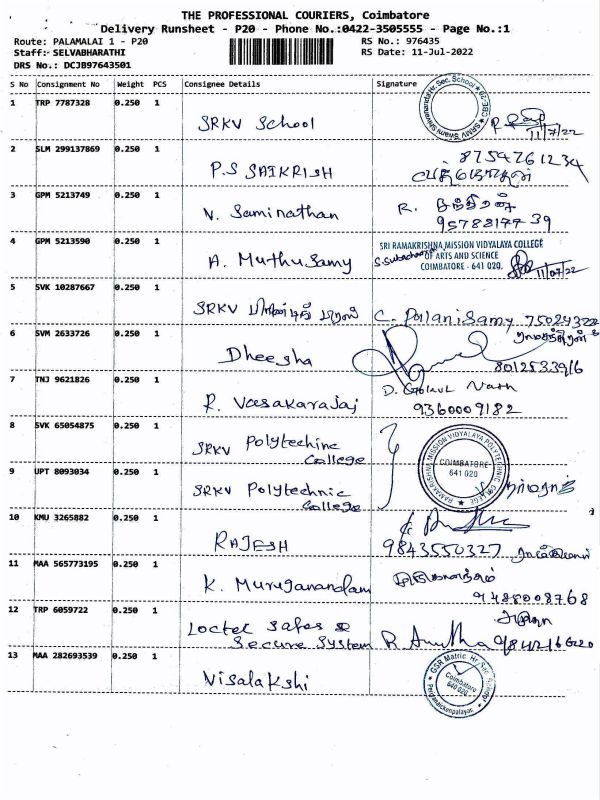 THE PROFESSIONAL COURIERS, Coimbatore
Delivery Runsheet - P20 - Phone No.:0422-3505555 - Page No.:1
Route: PALAMALAI 1 - P20 RS No.: 976435
Staff: SELVABHARATHI RS Date: 11-Jul-2022
DRS No.: DCJB97643501
S No Consignment No Weight PCS Consignee Details Signature
1 TRP 7787328 0.250 1 SRKV School 11/7/22
2 SLM 299137869 0.250 1 P.S SAIKRISH 8754761234
3 GPM 5213749 0.250 1 N. Saminathan R. 9578817739
4 GPM 5213590 0.250 1 A. Muthusamy
SRI RAMAKRISHNA MISSION VIDYALAYA COLLEGE
OF ARTS AND SCIENCE
COIMBATORE - 641 020. 11/07/22
5 SVK 10287667 0.250 1 SRKV C. Palanisamy
6 SVM 2633726 0.250 1 Dheesha
7 TNJ 9621826 0.250 1 R. Vasakarajaj D. Gokul Nath
9360009182
8 SVK 65054875 0.250 1 SRKV Polytechinc College
RAMAKRISHNA MISSION VIDYALAYA POLYTECHNIC COLLEGE
COIMBATORE
641 020
9 UPT 8093034 0.250 1 SRKV Polytechnic College
10 KMU 3265882 0.250 1 RAJESH 9843550327
11 MAA 565773195 0.250 1 K. Muruganandam 9488008768
12 TRP 6059722 0.250 1 Loctel Safes &
Secure System R. Anutha
13 MAA 282693539 0.250 1 Visalakshi
GSR Matric Hr. Sec. School
Coimbatore
641 020
Perianaickenpalayam